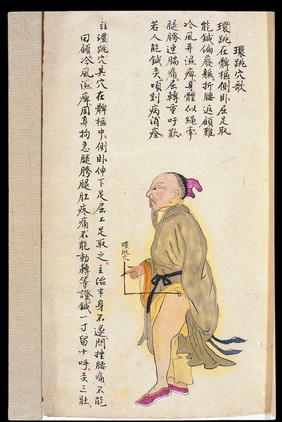 環跳穴歌
環跳在髀樞側卧屈足取
能鍼偏廢軀折腰返顧難
冷風并濕痺身體似繩牽
腿胯連腨痛屈轉重吁歎
若人能鍼灸頃刻病消痊
環跳穴
主環跳穴其穴在髀樞中側卧伸下足屈上足取之主治半身不遂閃挫腰痛不能
回顧冷風濕痺周身拘急腿胯腿肚疼痛不能動轉等證鍼一寸留十呼灸三壯